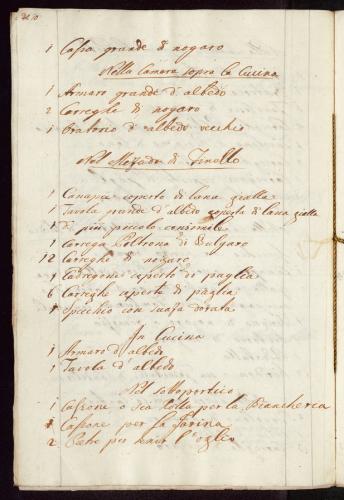 1 Cassa grande di nogaro
Nella Camera sopra la Cucina
1 Armaro grande d'albedo
2 Carreghe di nogaro
1 Oratorio d'albedo vecchio
Nel Mezado di Tinello
1 Canapè coperto di lana gialla
1 Tavola grande d'albedo coperta di lana gialla
1 D. più piccola consimile
1 Carrega Poltrona di Bulgaro
12 Carreghe di nogaro
1 Caregone coperto di paglia
6 Carreghe coperte di paglia
1 Specchio con suasa dorata
In Cucina
1 Armaro d'albedo
1 Tavola d'albedo
Nel sottoportico
1 Cassone o sia Totta per la Biancherea
1 Cassone per la Farina
2 per tener l'oglio